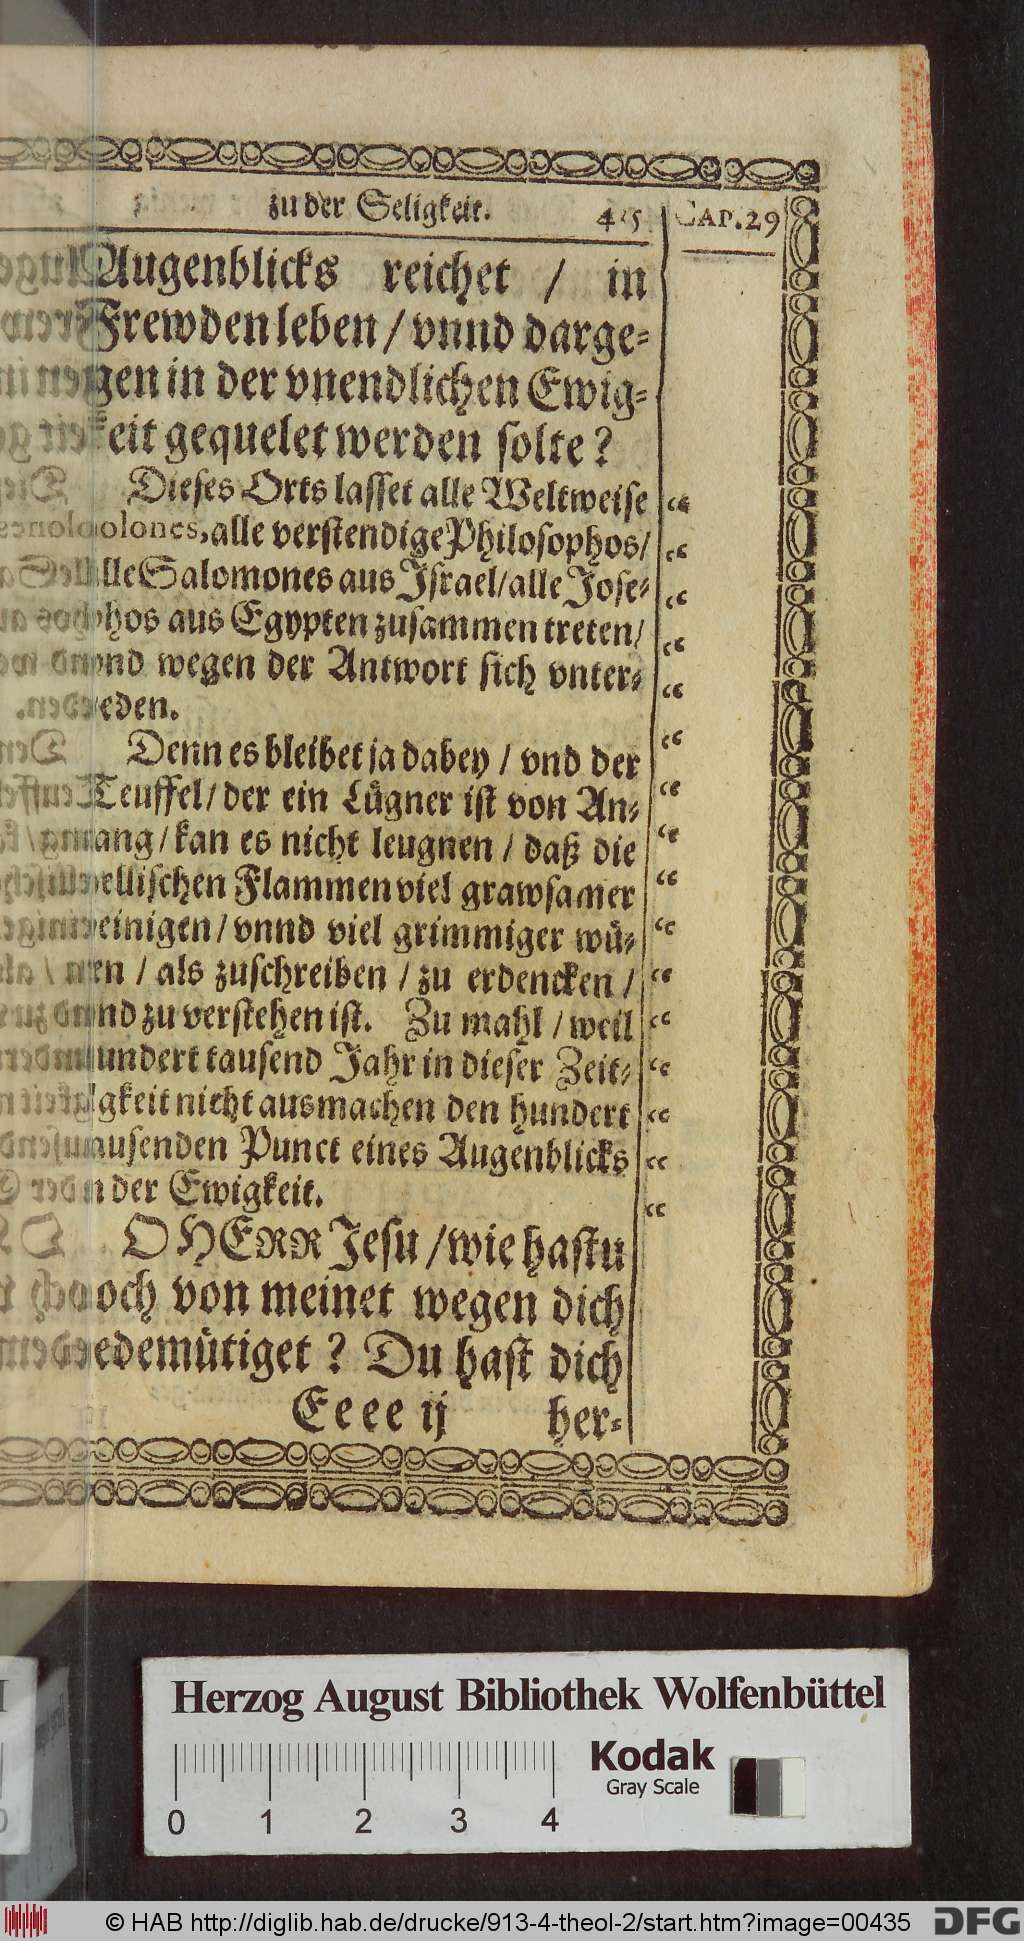 zu der Seligkeit. 415 CAP. 29
Augenblicks reichet / in
Frewden leben / vnnd darge⸗
gen in der vnendlichen Ewig⸗
keit gequelet werden solte?
Dieses Orts lasset alle Weltweise
olones, alle verstendige Philosophos/
lle Salomones aus Israel/ alle Jose⸗
phos aus Egypten zusammen treten/
vnd wegen der Antwort sich vnter⸗
reden.
Denn es bleibet ja dabey / vnd der
Teuffel/ der ein Lügner ist von An⸗
fang/ kan es nicht leugnen / daß die
hellischen Flammen viel grawsamer
peinigen/ vnnd viel grimmiger wü⸗
ten / als zuschreiben / zu erdencken /
vnd zu verstehen ist. Zu mahl / weil
hundert tausend Jahr in dieser Zeit⸗
ligkeit nicht ausmachen den hundert
tausenden Punct eines Augenblicks
in der Ewigkeit.
O HERR Jesu / wie hastu
doch von meinet wegen dich
gedemütiget? Du hast dich
Eeee ij her⸗
Herzog August Bibliothek Wolfenbüttel
Kodak
Gray Scale
0 1 2 3 4
© HAB http://diglib.hab.de/drucke/913-4-theol-2/start.htm?image=00435
DFG